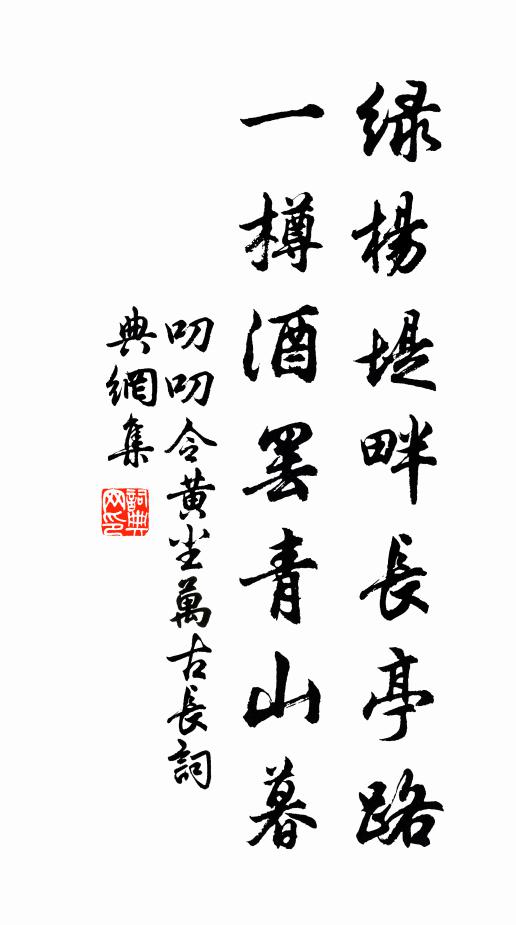 绿楊堤畔長亭路
一樽酒罢青山暮
叨叨令黄尘萬古長詞
典網集
詞典網印